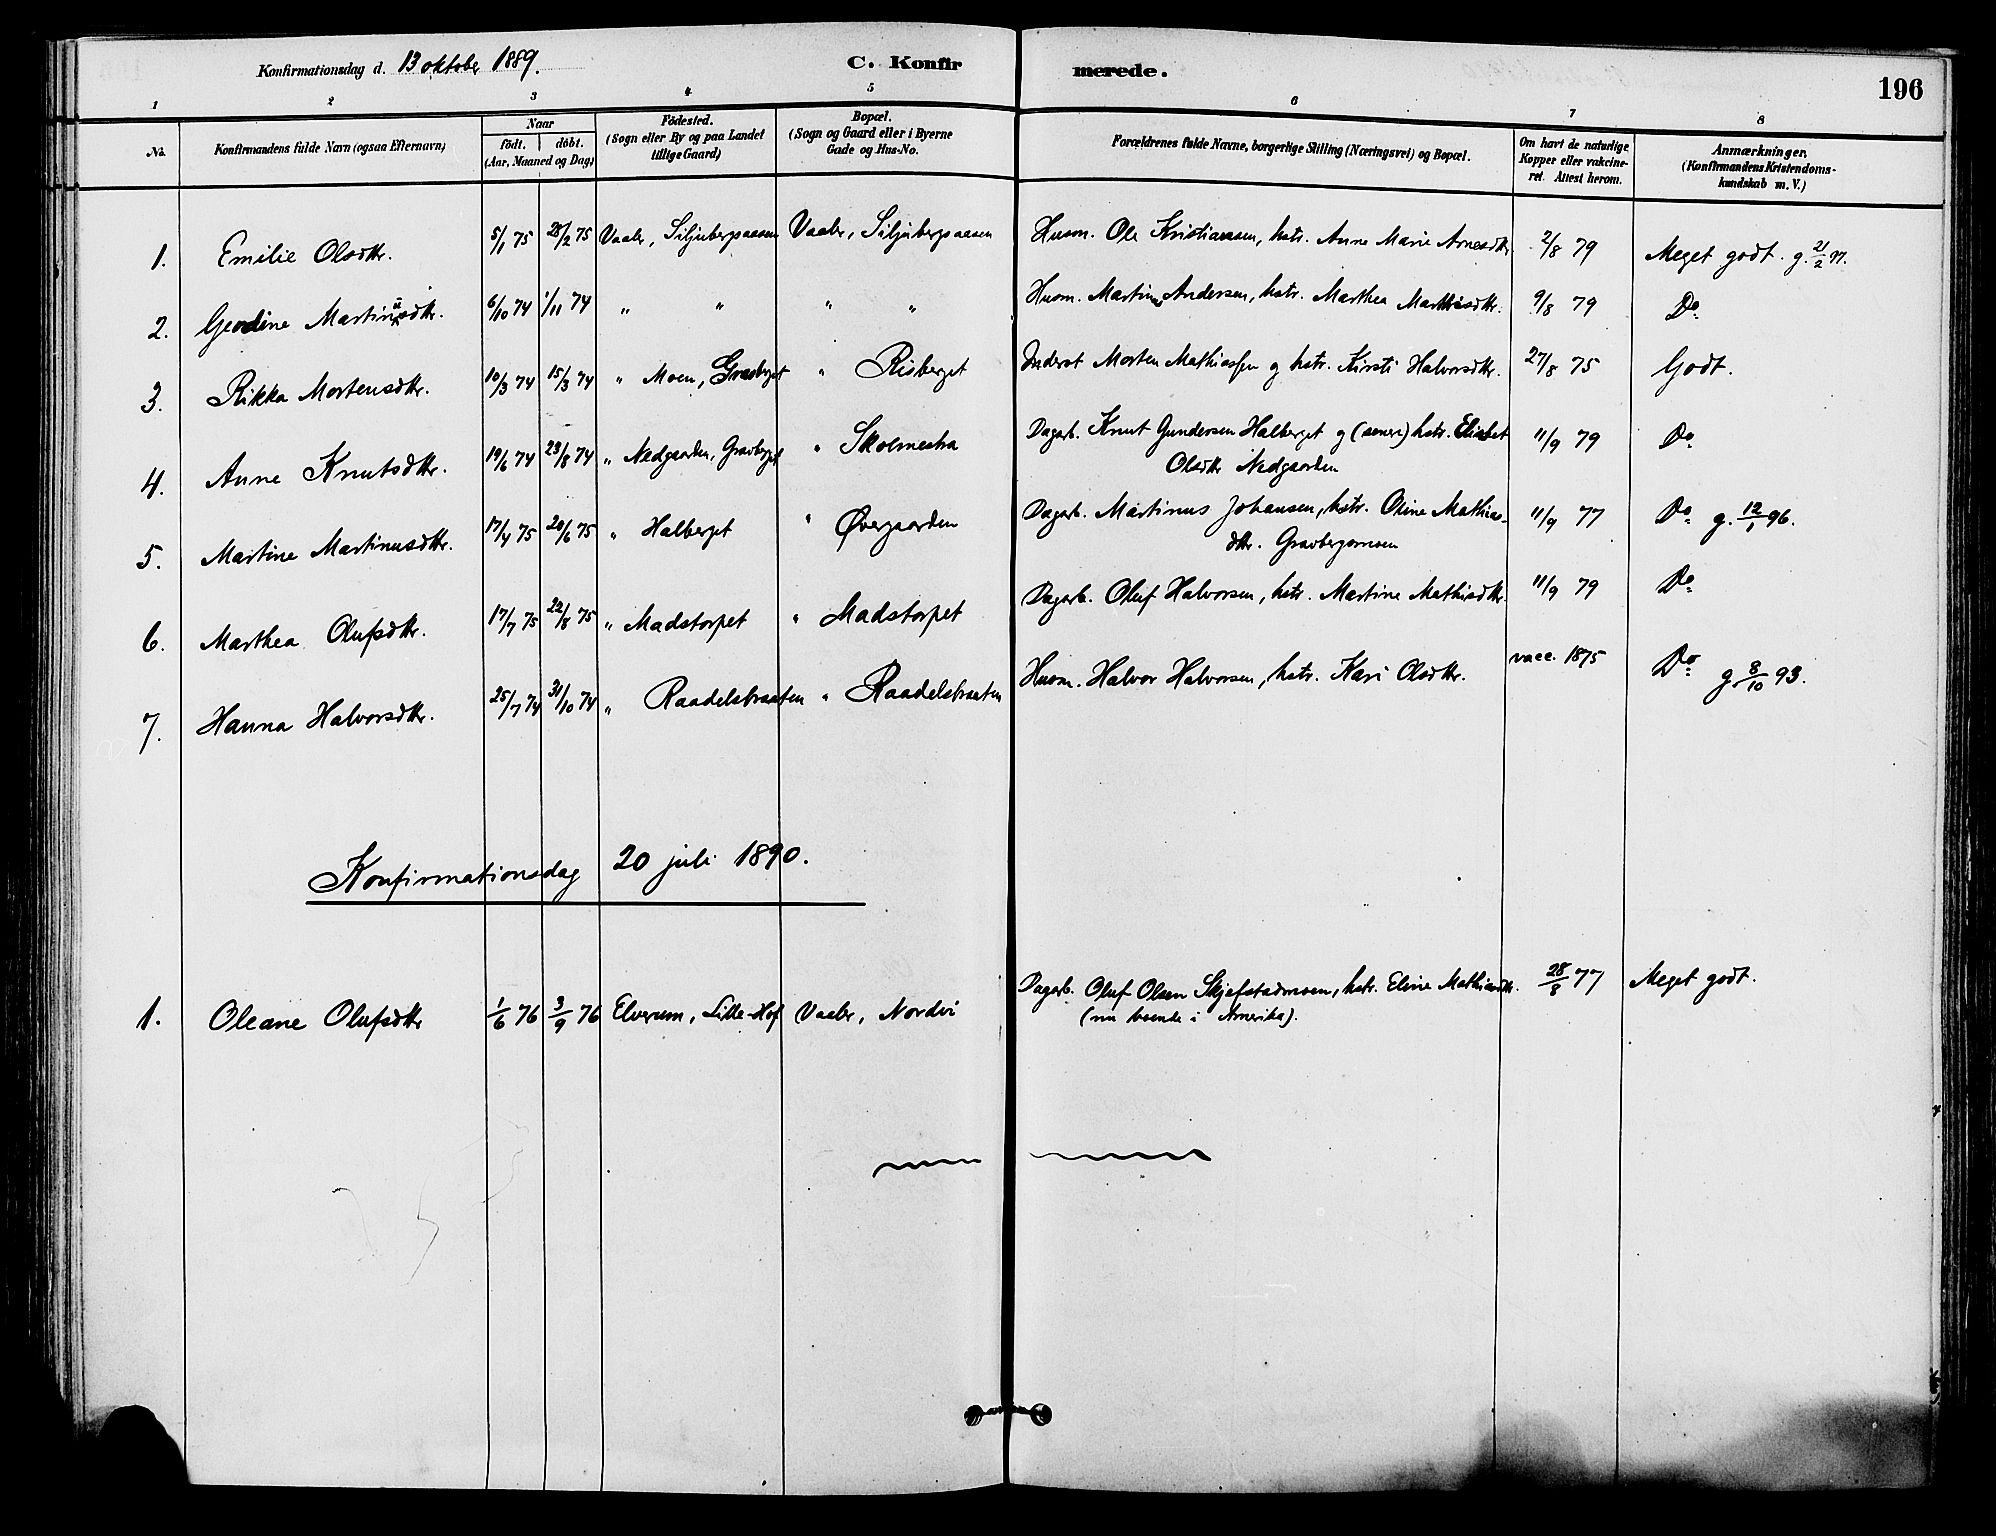 Konfirmationsdag d. 13 oktober 1889. C. Konfir merede. 196
1 2 3 4 5 6 7 8
No. Konfirmandens fulde Navn (ogsaa Efternavn) Naar födt. döbt. (Aar, Maaned og Dag) Födested. (Sogn eller By og paa Landet tillige Gaard) Bopæl. (Sogn og Gaard eller i Byerne Gade og Hus-No. Forældrenes fulde Navne, borgerlige Stilling (Næringsvei) og Bopæl. Om havt de naturlige Kopper eller vakcineret. Attest herom. Anmærkninger. (Konfirmandens Kristendomskundskab m. V.)
1. Emilie Olsdtr. 5/1 75 28/2 75 Vaaler, Siljubergsaasen Vaaler, Siljubergsaasen Husm. Ole Kristiansen, hstr. Anne Marie Arnesdtr. 2/8 79 Meget godt. g. 21/2 97.
2. Martinusdtr. 6/10 74 1/11 74 " " " " Husm. Martinus Andersen, hstr. Marthea 9/8 79 Do
3. Rikka Mortensdtr. 10/3 74 15/3 74 " Moen, Gravberget " Risberget Inderst Morten Mathiassen og hstr. Kirsti Halvorsdtr. 27/8 75 Godt.
4. Anne Knutsdtr. 19/6 74 23/8 74 " Nedgaarden, Gravberget " Knut Gundersen Halberget og hstr. Elisabet
Olsdtr Nedgaarden 11/9 79 Do
5. Martine Martinusdtr. 17/4 75 20/6 75 " Halberget " Øvergaarden Dagarb. Martinus Johansen, hstr. Oline Mathias-
dtr. Gravbergsmoen 11/9 77 Do g. 12/1 96.
6. Marthea Olufsdtr. 17/7 75 22/8 75 " Madstorpet " Madstorpet Dagarb. Oluf Halvorsen, hstr. Martine Mathisdtr. 11/9 79 Do
7. Hanna Halvorsdtr. 25/7 74 31/10 74 " Raadelsbraaten " Raadelsbraaten Husm. Halvor Halvorsen, hstr. Kari Olsdtr. vacc. 1875 Do g. 8/10 93.
Konfirmationsdag 20 juli 1890.
1. Oleane Olufsdtr 1/6 76 3/9 76 Elverum, Lille-Hof Vaaler, Nordvi Dagarb. Oluf Olsen Skjefstadmoen, hstr. Eline Mathiasdtr. 28/8 77 Meget godt.
(nu boende i Amerika).